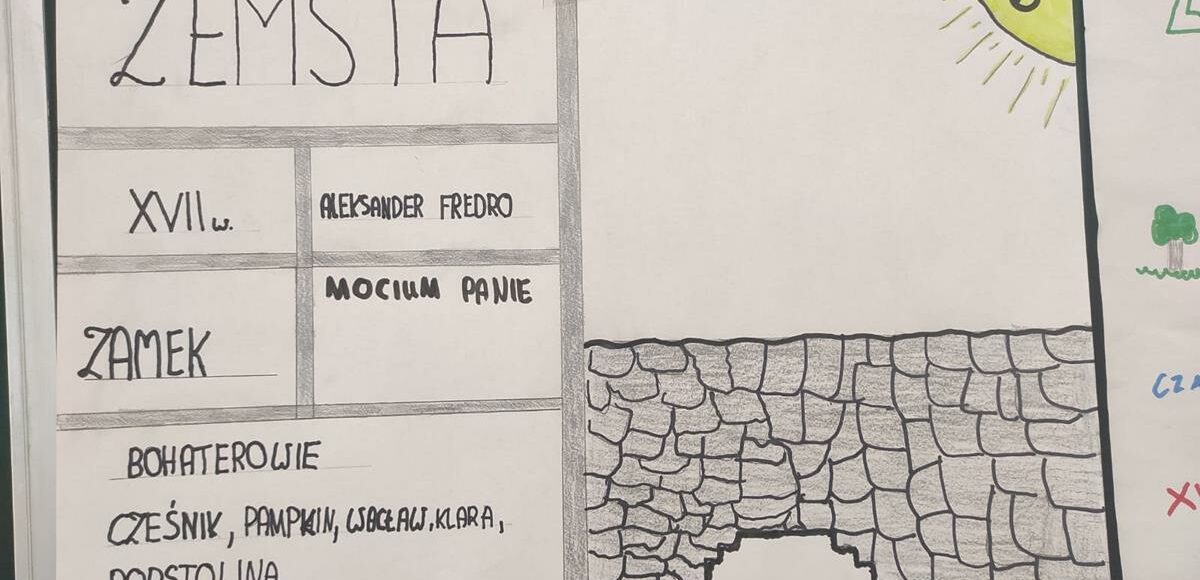 ZEMSTA
XVII w.
ALEKSANDER FREDRO
MOCIUM PANIE
ZAMEK
BOHATEROWIE
CZEŚNIK, PAMPKIN, WACŁAW, KLARA,
PODSTOLINA
CZA
XV